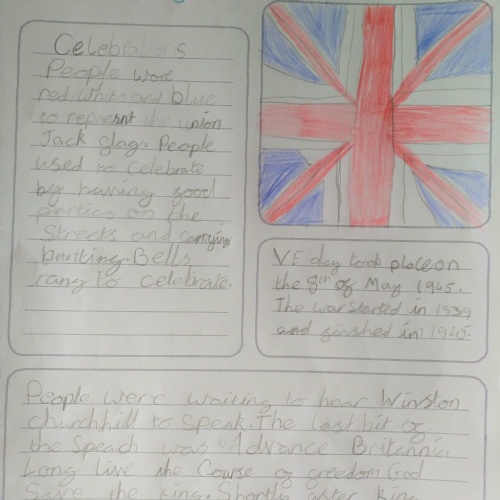 Celebrations
People wore
red white and blue
to represnt the union
Jack flag. People
used to celebrate
by having food
parties on the
streets and carrying
bunting. Bells
rang to celebrate.
VE day took place on
the 8th of May 1945.
The war started in 1939
and finshed in 1945.
People were waiting to hear Winston
churchhill to speak. The last bit of
the Speach was "Advance Britannia
Long live the Course of freedom God
Save the king. Shortly after king